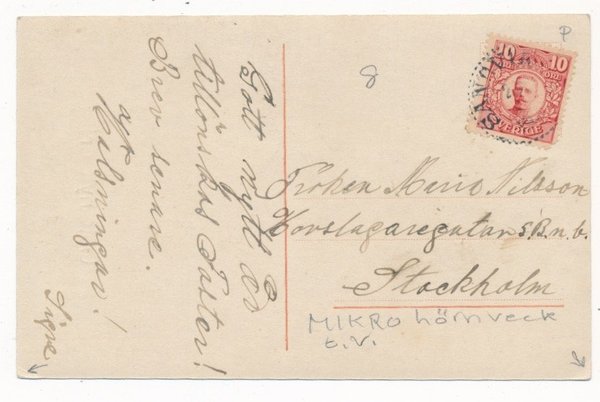 Gott nytt år
tillönskas Faster!
Brev senare.
Hälsningar!
Signe
10 10
SVERIGE
8
P
Fröken Maria Nilsson
Hovslagaregatan 5 B. n. b.
Stockholm
MIKRO hörnveck
t.v.